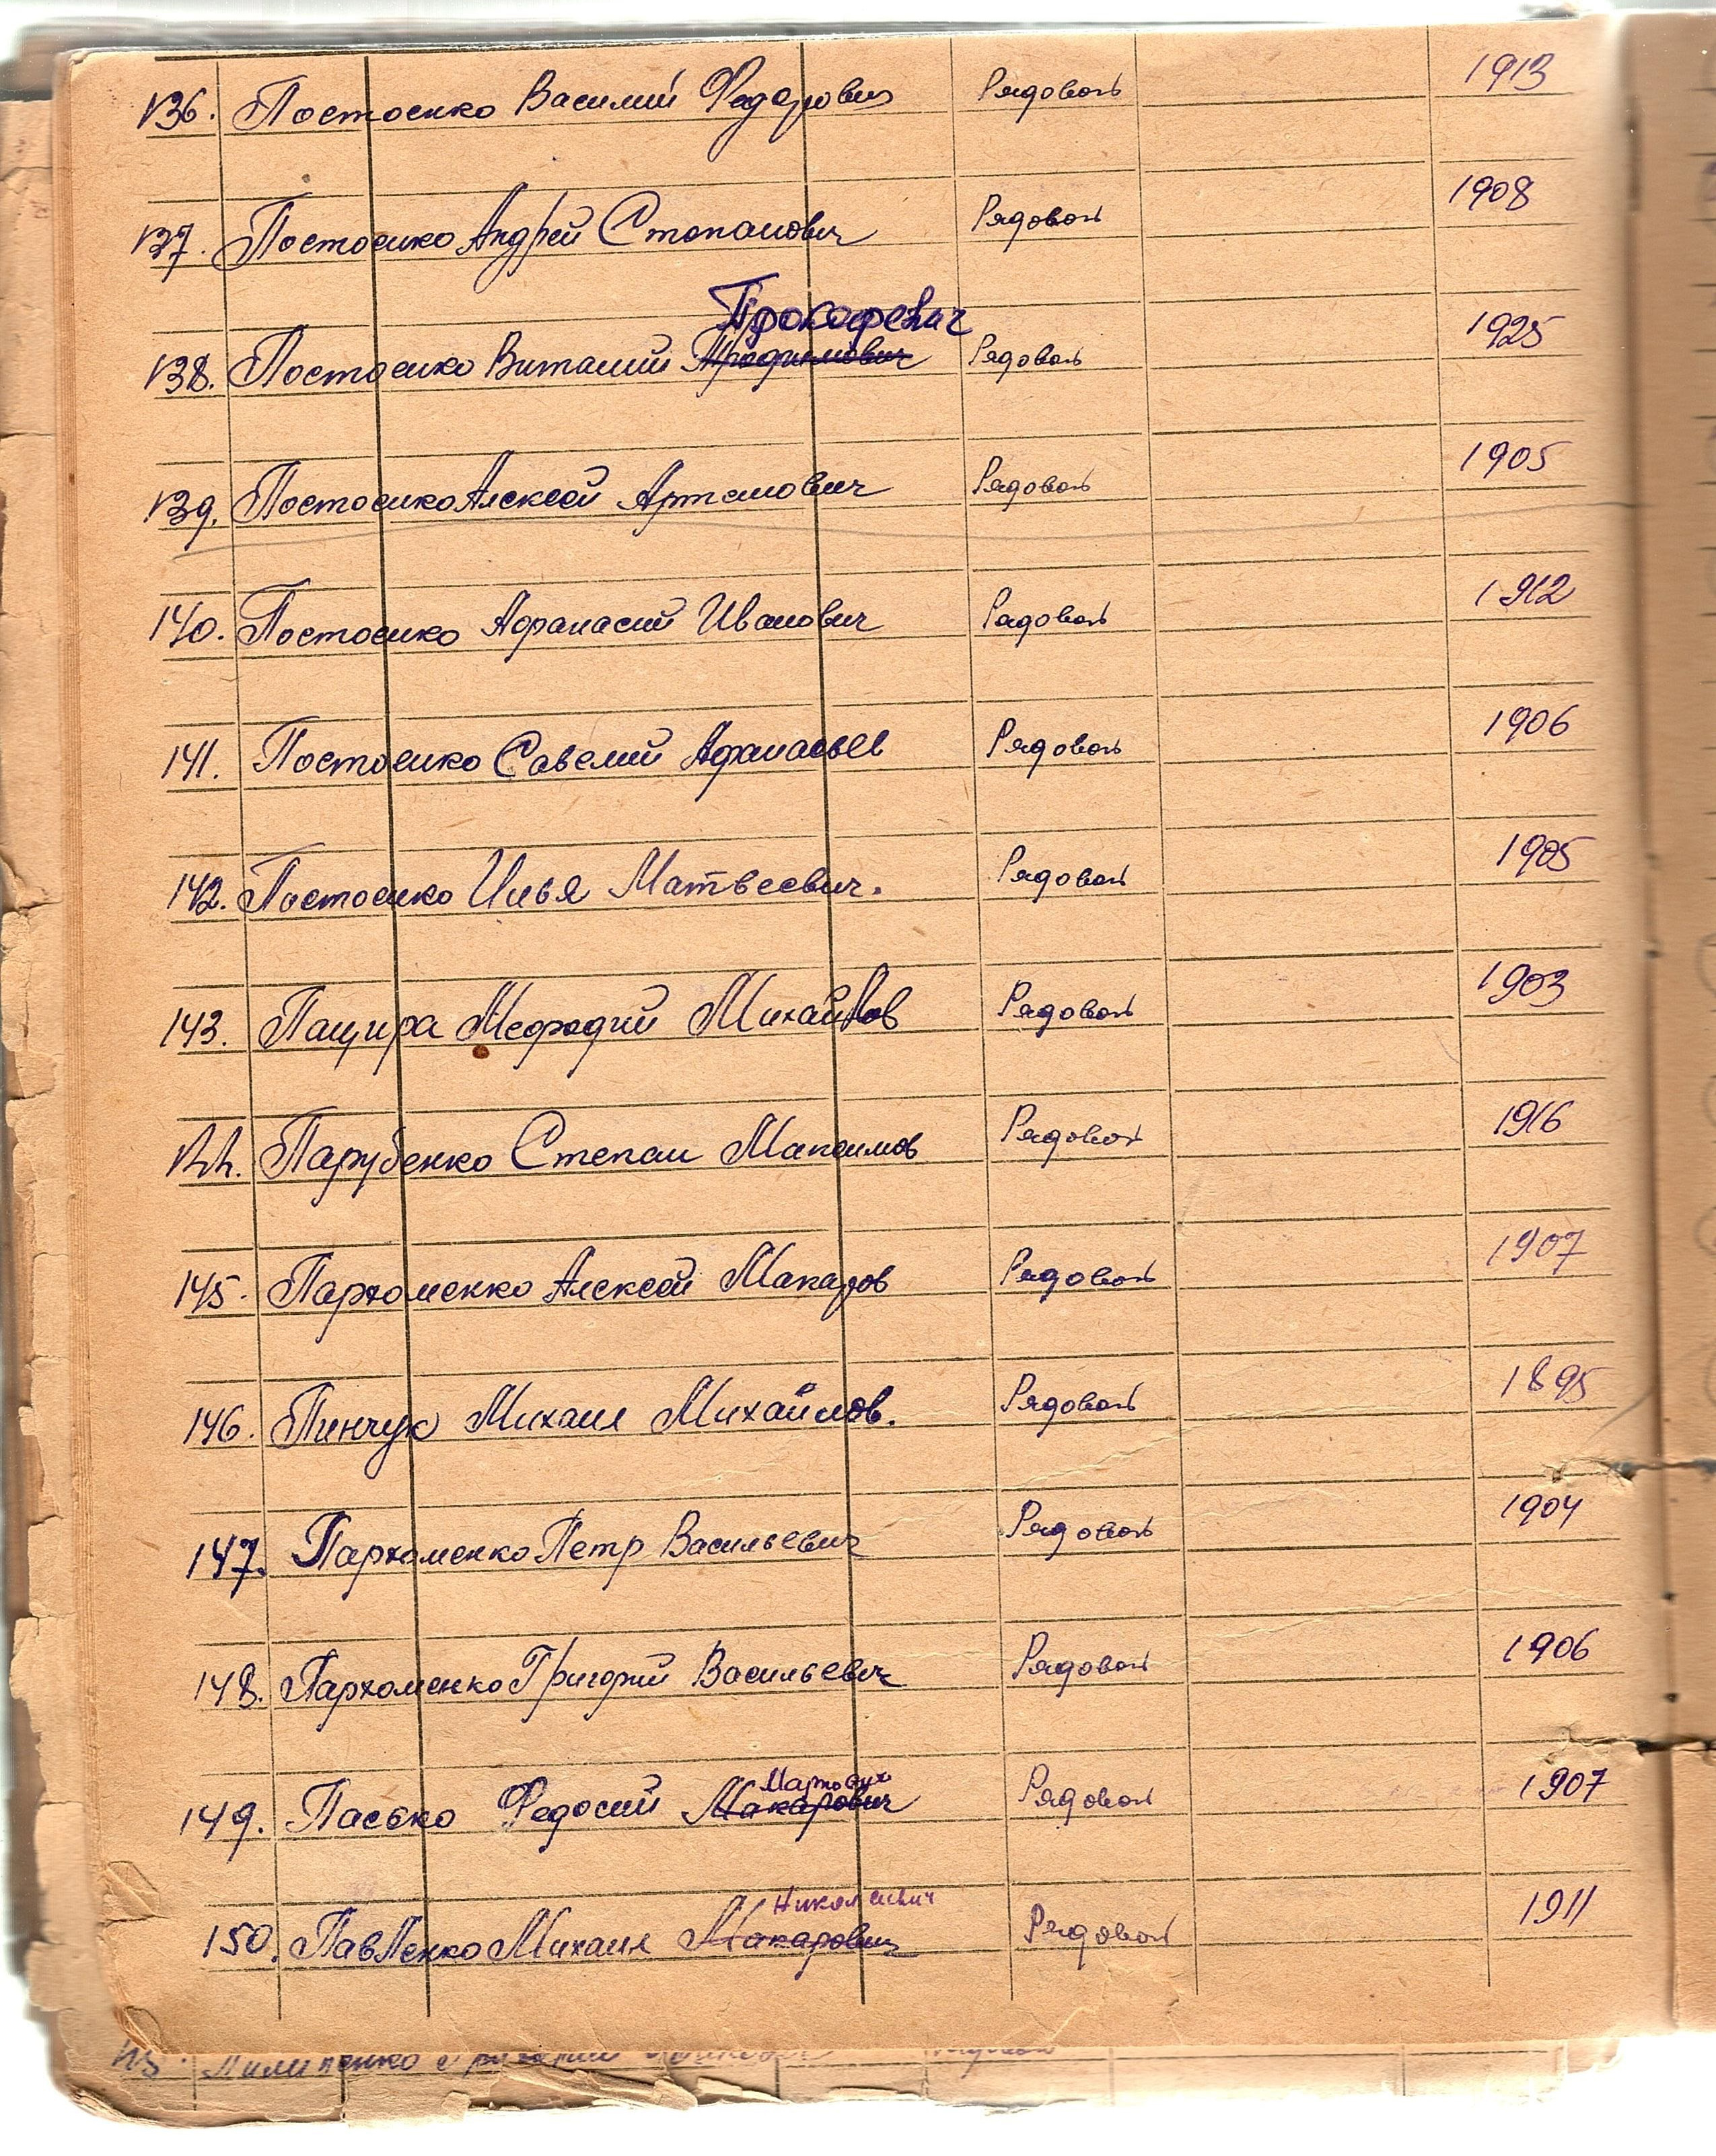 136. Постоенко Василий Федорович Рядовой 1913
137. Постоенко Андрей Степанович Рядовой 1908
Прокофевич
138. Постоенко Виталий Рядовой 1925
139. Постоенко Алексей Артемович Рядовой 1905
140. Постоенко Афанасий Иванович Рядовой 1912
141. Постоенко Савелий Афанасьев Рядовой 1906
142. Постоенко Илья Матвеевич. Рядовой 1905
143. Пащира Мефодий Михайлов Рядовой 1903
144. Парубенко Степан Максимов Рядовой 1916
145. Пархоменко Алексей Макаров Рядовой 1907
146. Пинчук Михаил Михайлов. Рядовой 1895
147. Пархоменко Петр Васильевич Рядовой 1904
148. Пархоменко Григорий Васильевич Рядовой 1906
Маркович
149. Пасько Федосий Макарович Рядовой 1907
Николаевич
150. Павленко Михаил Макарович Рядовой 1911